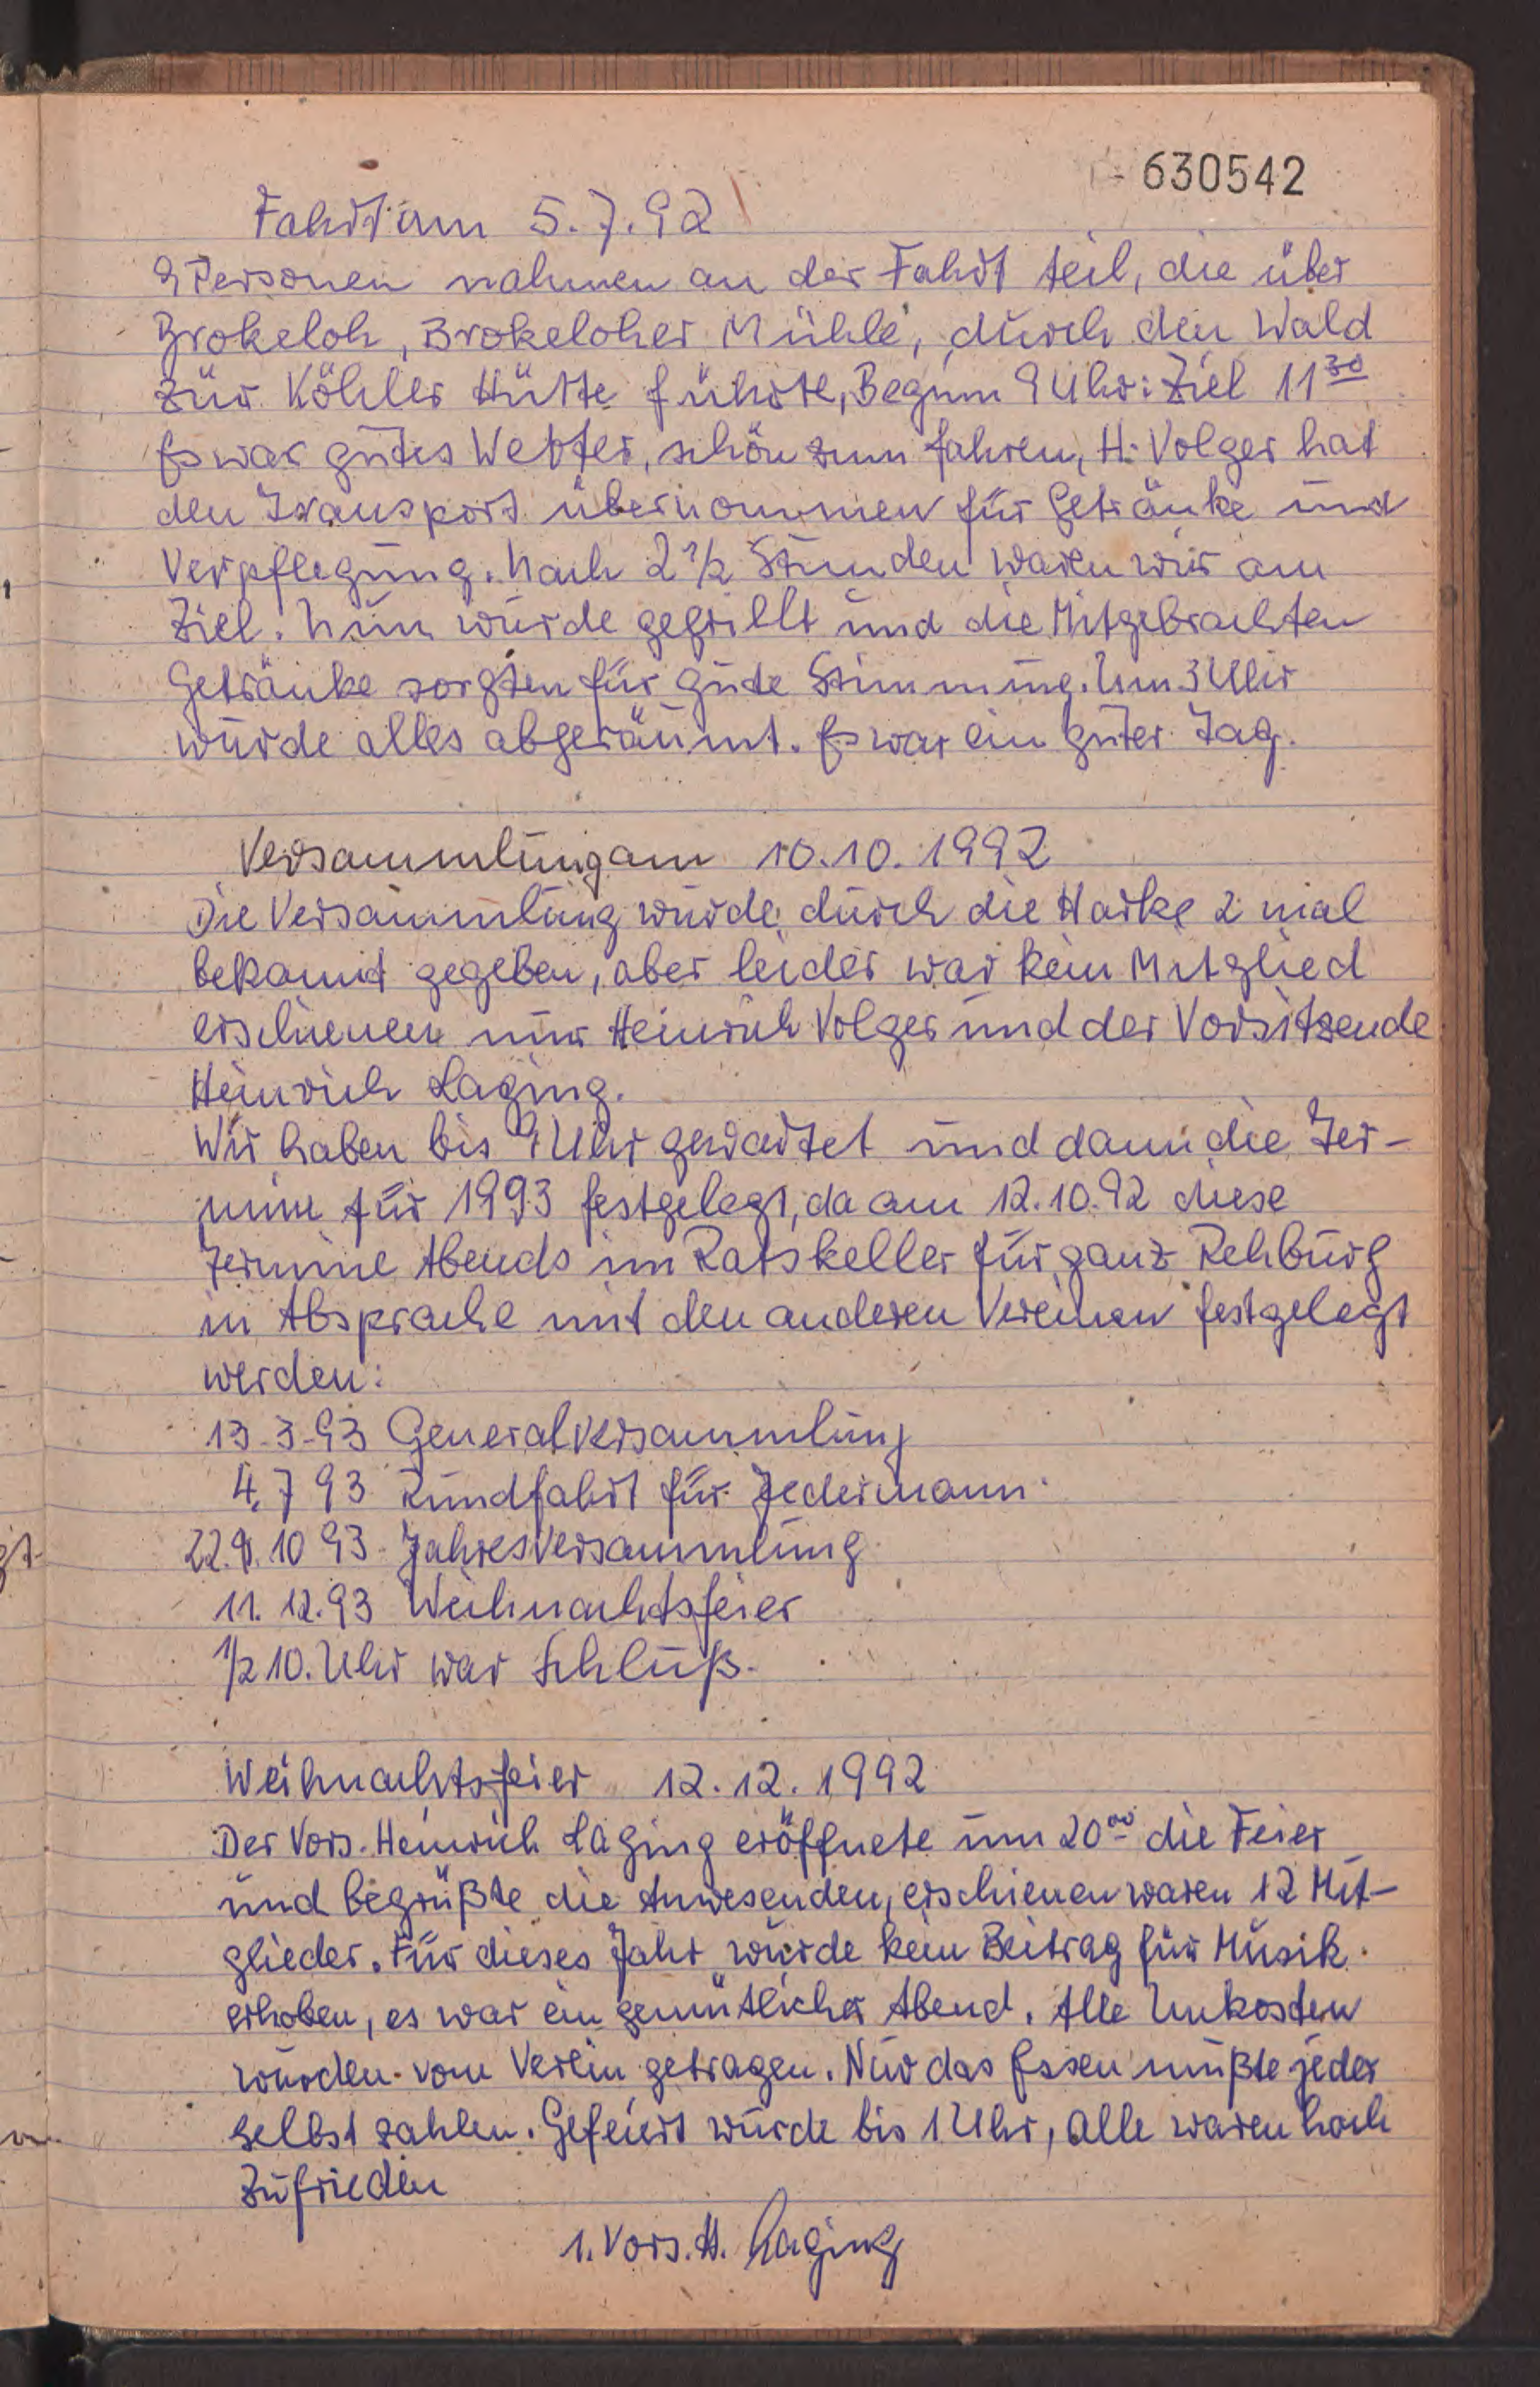 630542
Fahrt am 5.7.92
9 Personen nahmen an der Fahrt teil, die über
Brokeloh, Brokeloher Mühle, durch den Wald
zur Köhler Hütte führte, Beginn 9 Uhr: Ziel 11³⁰
Es war gutes Wetter, schön zum fahren, H. Volger hat
den Transport übernommen für Getränke und
Verpflegung. Nach 2 1/2 Stunden waren wir am
Ziel. Nun wurde gegrillt und die Mitgebrachten
Getränke sorgten für gute Stimmung. Um 3 Uhr
wurde alles abgeräumt. Es war ein guter Tag.
Versammlung am 10.10.1992
Die Versammlung wurde durch die Harke 2 mal
bekannt gegeben, aber leider war kein Mitglied
erschienen nur Heinrich Volger und der Vorsitzende
Heinrich Laging.
Wir haben bis 9 Uhr gewartet und dann die Ter-
mine für 1993 festgelegt, da am 12.10.92 diese
Termine Abends im Ratskeller für ganz Rehburg
in Absprache mit den anderen Vereinen festgelegt
werden:
13-3-93 Generalversammlung
4.7 93 Rundfahrt für Jedermann
22. 10 93 Jahresversammlung
11.12.93 Weihnachtsfeier
1/2 10. Uhr war Schluß.
Weihnachtsfeier 12.12.1992
Der Vors. Heinrich Laging eröffnete um 20⁰⁰ die Feier
und begrüßte die Anwesenden, erschienen waren 12 Mit-
glieder. Für dieses Jahr wurde kein Beitrag für Musik
erhoben, es war ein gemütlicher Abend. Alle Unkosten
wurden vom Verein getragen. Nur das Essen mußte jeder
selbst zahlen. Gefeiert wurde bis 1 Uhr, Alle waren hoch
Zufrieden
1. Vors. H. Laging